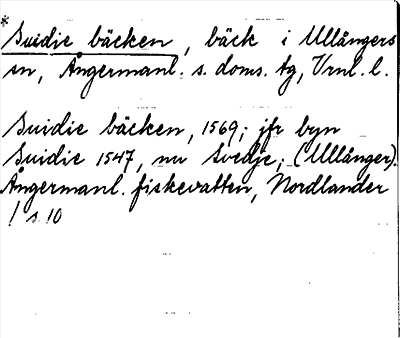 * Suidie bäcken, bäck i Ullångers
sn, Ångermanl. s. doms. tg, Vrnl. l.
Suidie bäcken, 1569; jfr byn
Suidie 1547, nu Svedje; (Ullånger).
Ångermanl. fiskevatten, Nordlander
! s 10